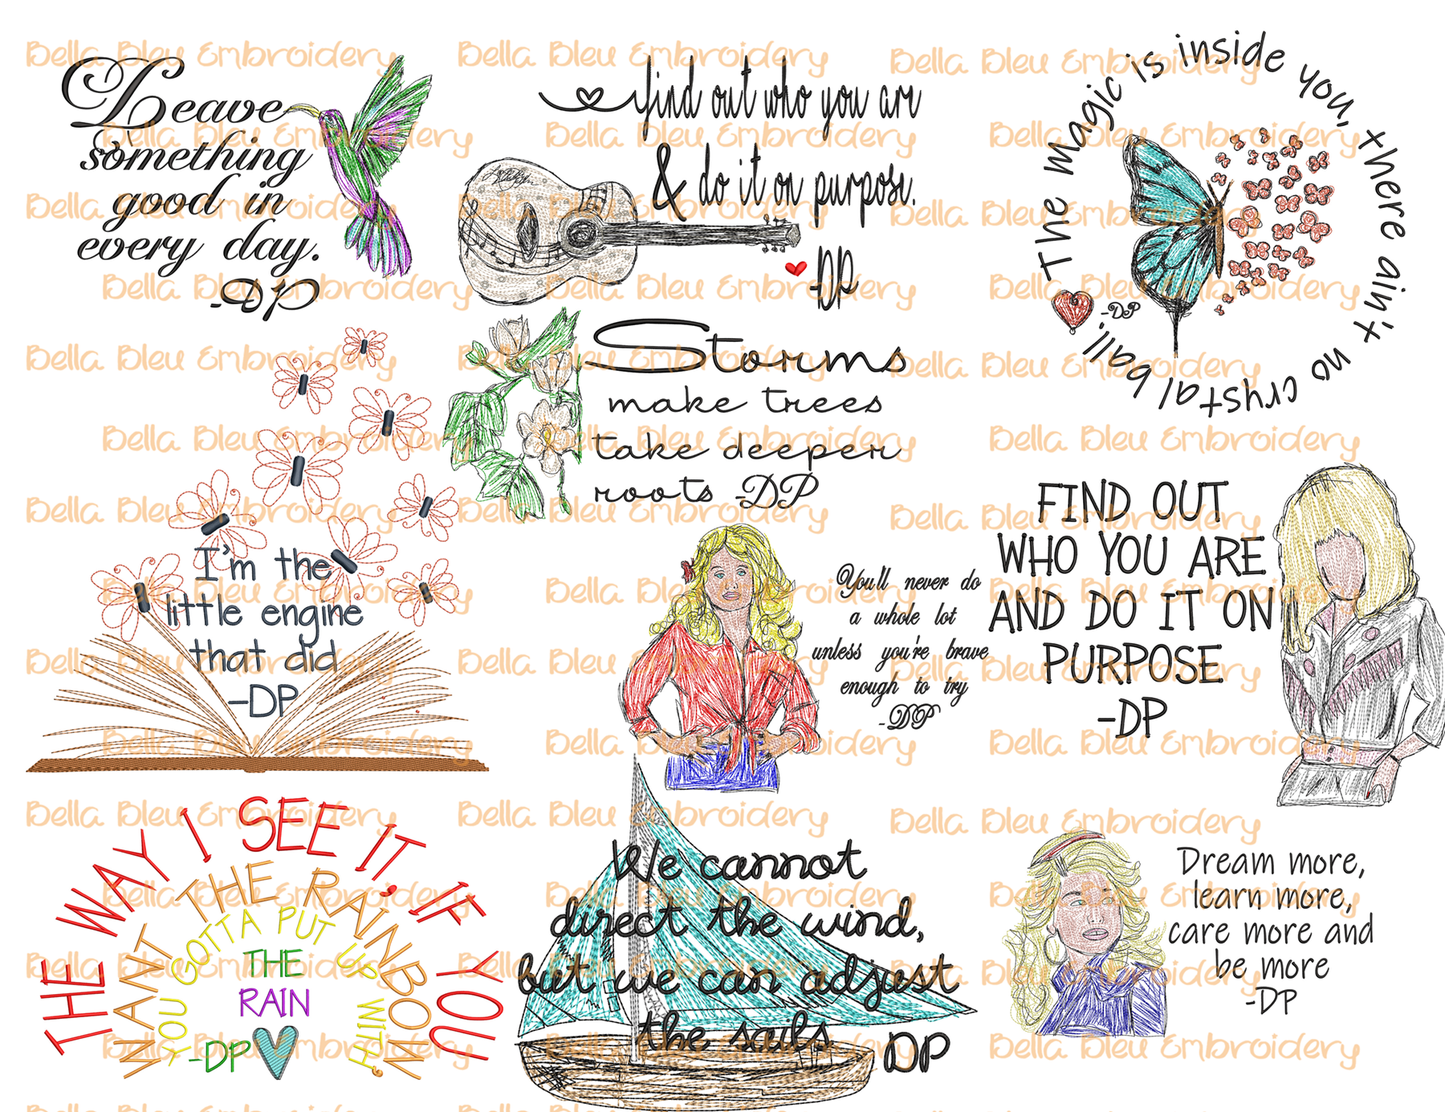 Leave
something
good in
every day.
-DP
find out who you are
& do it on purpose.
-DP
The magic is inside you, there ain't no crystal ball
-DP
Storms
make trees
take deeper
roots -DP
I'm the
little engine
that did
-DP
You'll never do
a whole lot
unless you're brave
enough to try
-DP
FIND OUT
WHO YOU ARE
AND DO IT ON
PURPOSE
-DP
THE WAY I SEE IT, IF YOU
WANT THE RAINBOW
YOU GOTTA PUT UP WITH
THE
RAIN
-DP
We cannot
direct the wind,
but we can adjust
the sails
DP
Dream more,
learn more,
care more and
be more
-DP
Bella Bleu Embroidery